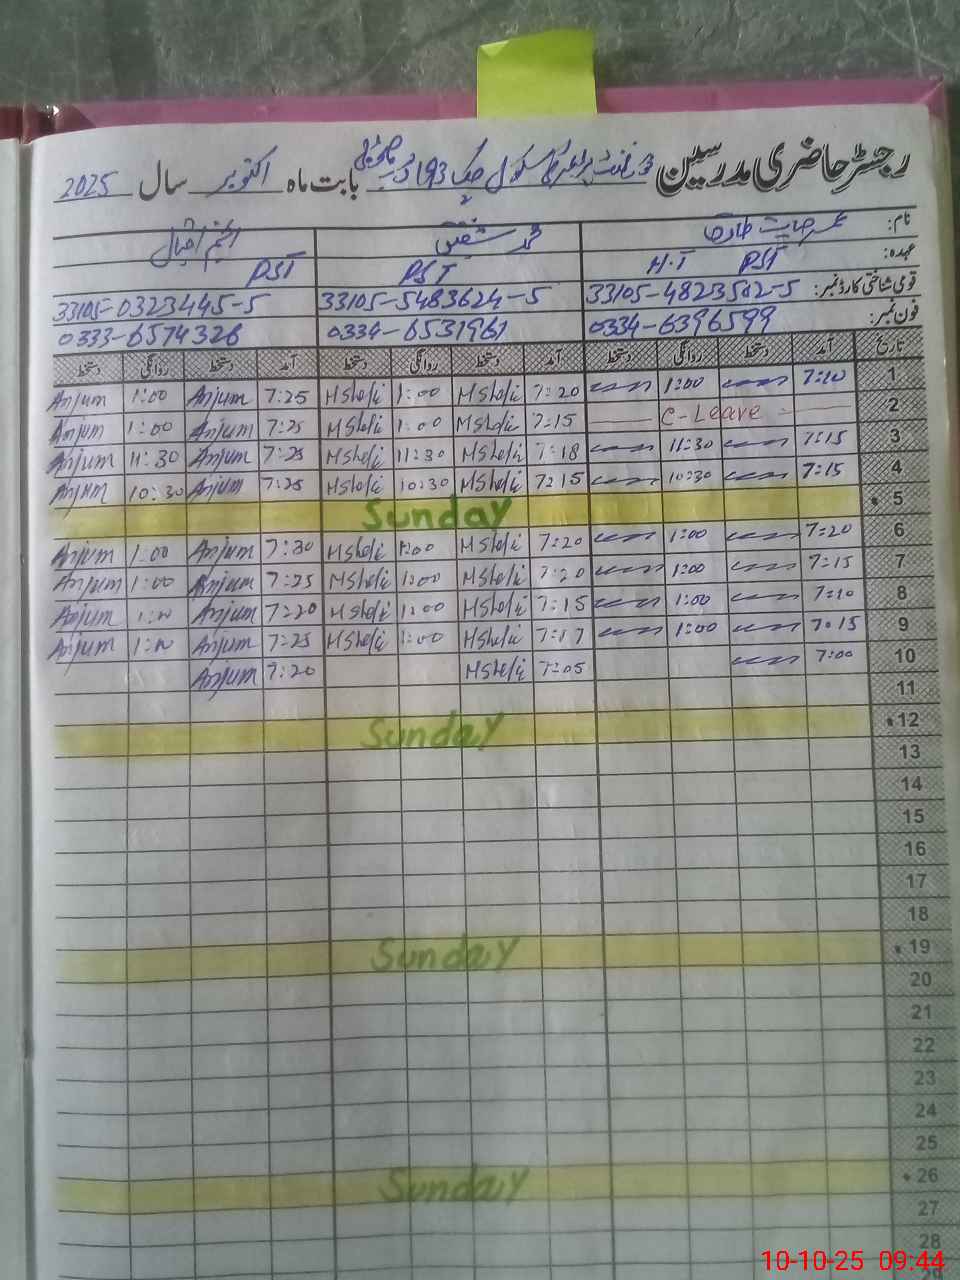 رجسٹر حاضری مدرسین گورنمنٹ پرائمری سکول چک 193 بابت ماہ اکتوبر سال 2025
نام: محمد شفیق انجم اقبال
عہدہ: PST H.T PST PST
قومی شناختی کارڈ نمبر: 33105-4823502-5 33105-5483624-5 33105-0323445-5
فون نمبر: 0334-6396599 0334-6531961 0333-6574326
تاریخ آمد دستخط روانگی دستخط آمد دستخط روانگی دستخط آمد دستخط روانگی دستخط
1 7:10 1:00 7:20 MShafi 1:00 MShafi 7:25 Anjum 1:00 Anjum
2 C-Leave 7:15 MShafi 1:00 MShafi 7:25 Anjum 1:00 Anjum
3 7:15 11:30 7:18 MShafi 11:30 MShafi 7:25 Anjum 11:30 Anjum
4 7:15 10:30 7:15 MShafi 10:30 MShafi 7:25 Anjum 10:30 Anjum
5 Sunday
6 7:20 1:00 7:20 MShafi 1:00 MShafi 7:30 Anjum 1:00 Anjum
7 7:15 1:00 7:20 MShafi 1:00 MShafi 7:25 Anjum 1:00 Anjum
8 7:10 1:00 7:15 MShafi 1:00 MShafi 7:20 Anjum Anjum
9 7:15 1:00 7:17 MShafi 1:00 MShafi 7:25 Anjum Anjum
10 7:00 7:05 MShafi 7:20 Anjum
11
12 Sunday
13
14
15
16
17
18
19 Sunday
20
21
22
23
24
25
26 Sunday
27
28
29
10-10-25 09:44